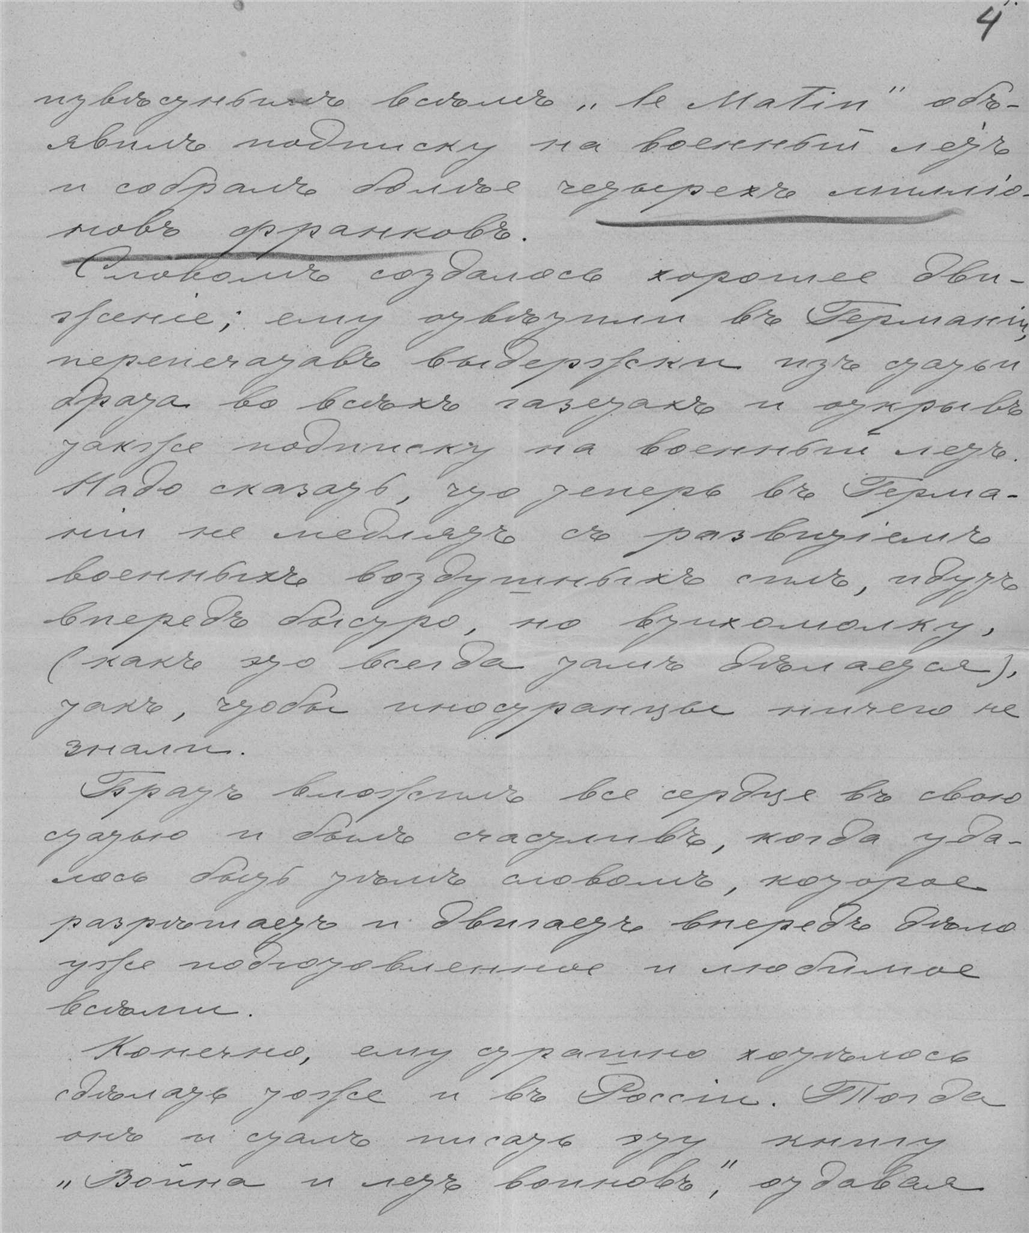 4
извѣстнымъ всѣмъ „le Matin" объ-
явилъ подписку на военный летъ
и собралъ болѣе четырехъ милліо-
новъ франковъ.
Словомъ создалось хорошее дви-
женіе; ему отвѣтили въ Германіи,
перепечатавъ выдержки изъ статьи
брата во всѣхъ газетахъ и открывъ
также подписку на военный летъ.
Надо сказать, что теперь въ Герма-
ніи не медлятъ съ развитіемъ
военныхъ воздушныхъ силъ, идутъ
впередъ быстро, но втихомолку,
(какъ это всегда тамъ дѣлается),
такъ, чтобы иностранцы ничего не
знали.
Братъ вложилъ все сердце въ свою
статью и былъ счастливъ, когда уда-
лось быть тѣмъ словомъ, которое
разрѣшаетъ и двигаетъ впередъ дѣло
уже подготовленное и любимое
всѣми.
Конечно, ему страшно хотѣлось
сдѣлать тоже и въ Россіи. Тогда
онъ и сталъ писать эту книгу
„Война и летъ воиновъ", отдавая